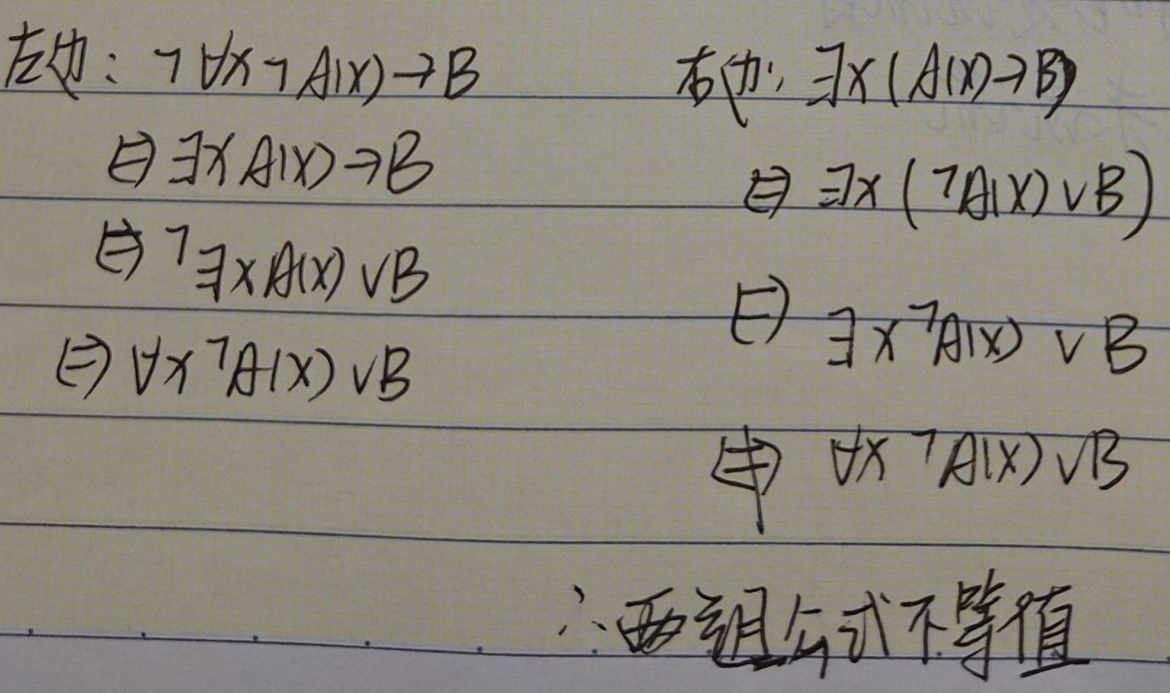 左边: ¬∀x¬A(x)→B
⇔∃xA(x)→B
⇔¬∃xA(x)∨B
⇔∀x¬A(x)∨B
右边: ∃x(A(x)→B)
⇔∃x(¬A(x)∨B)
⇔∃x¬A(x)∨B
⇎∀x¬A(x)∨B
∴两组公式不等值